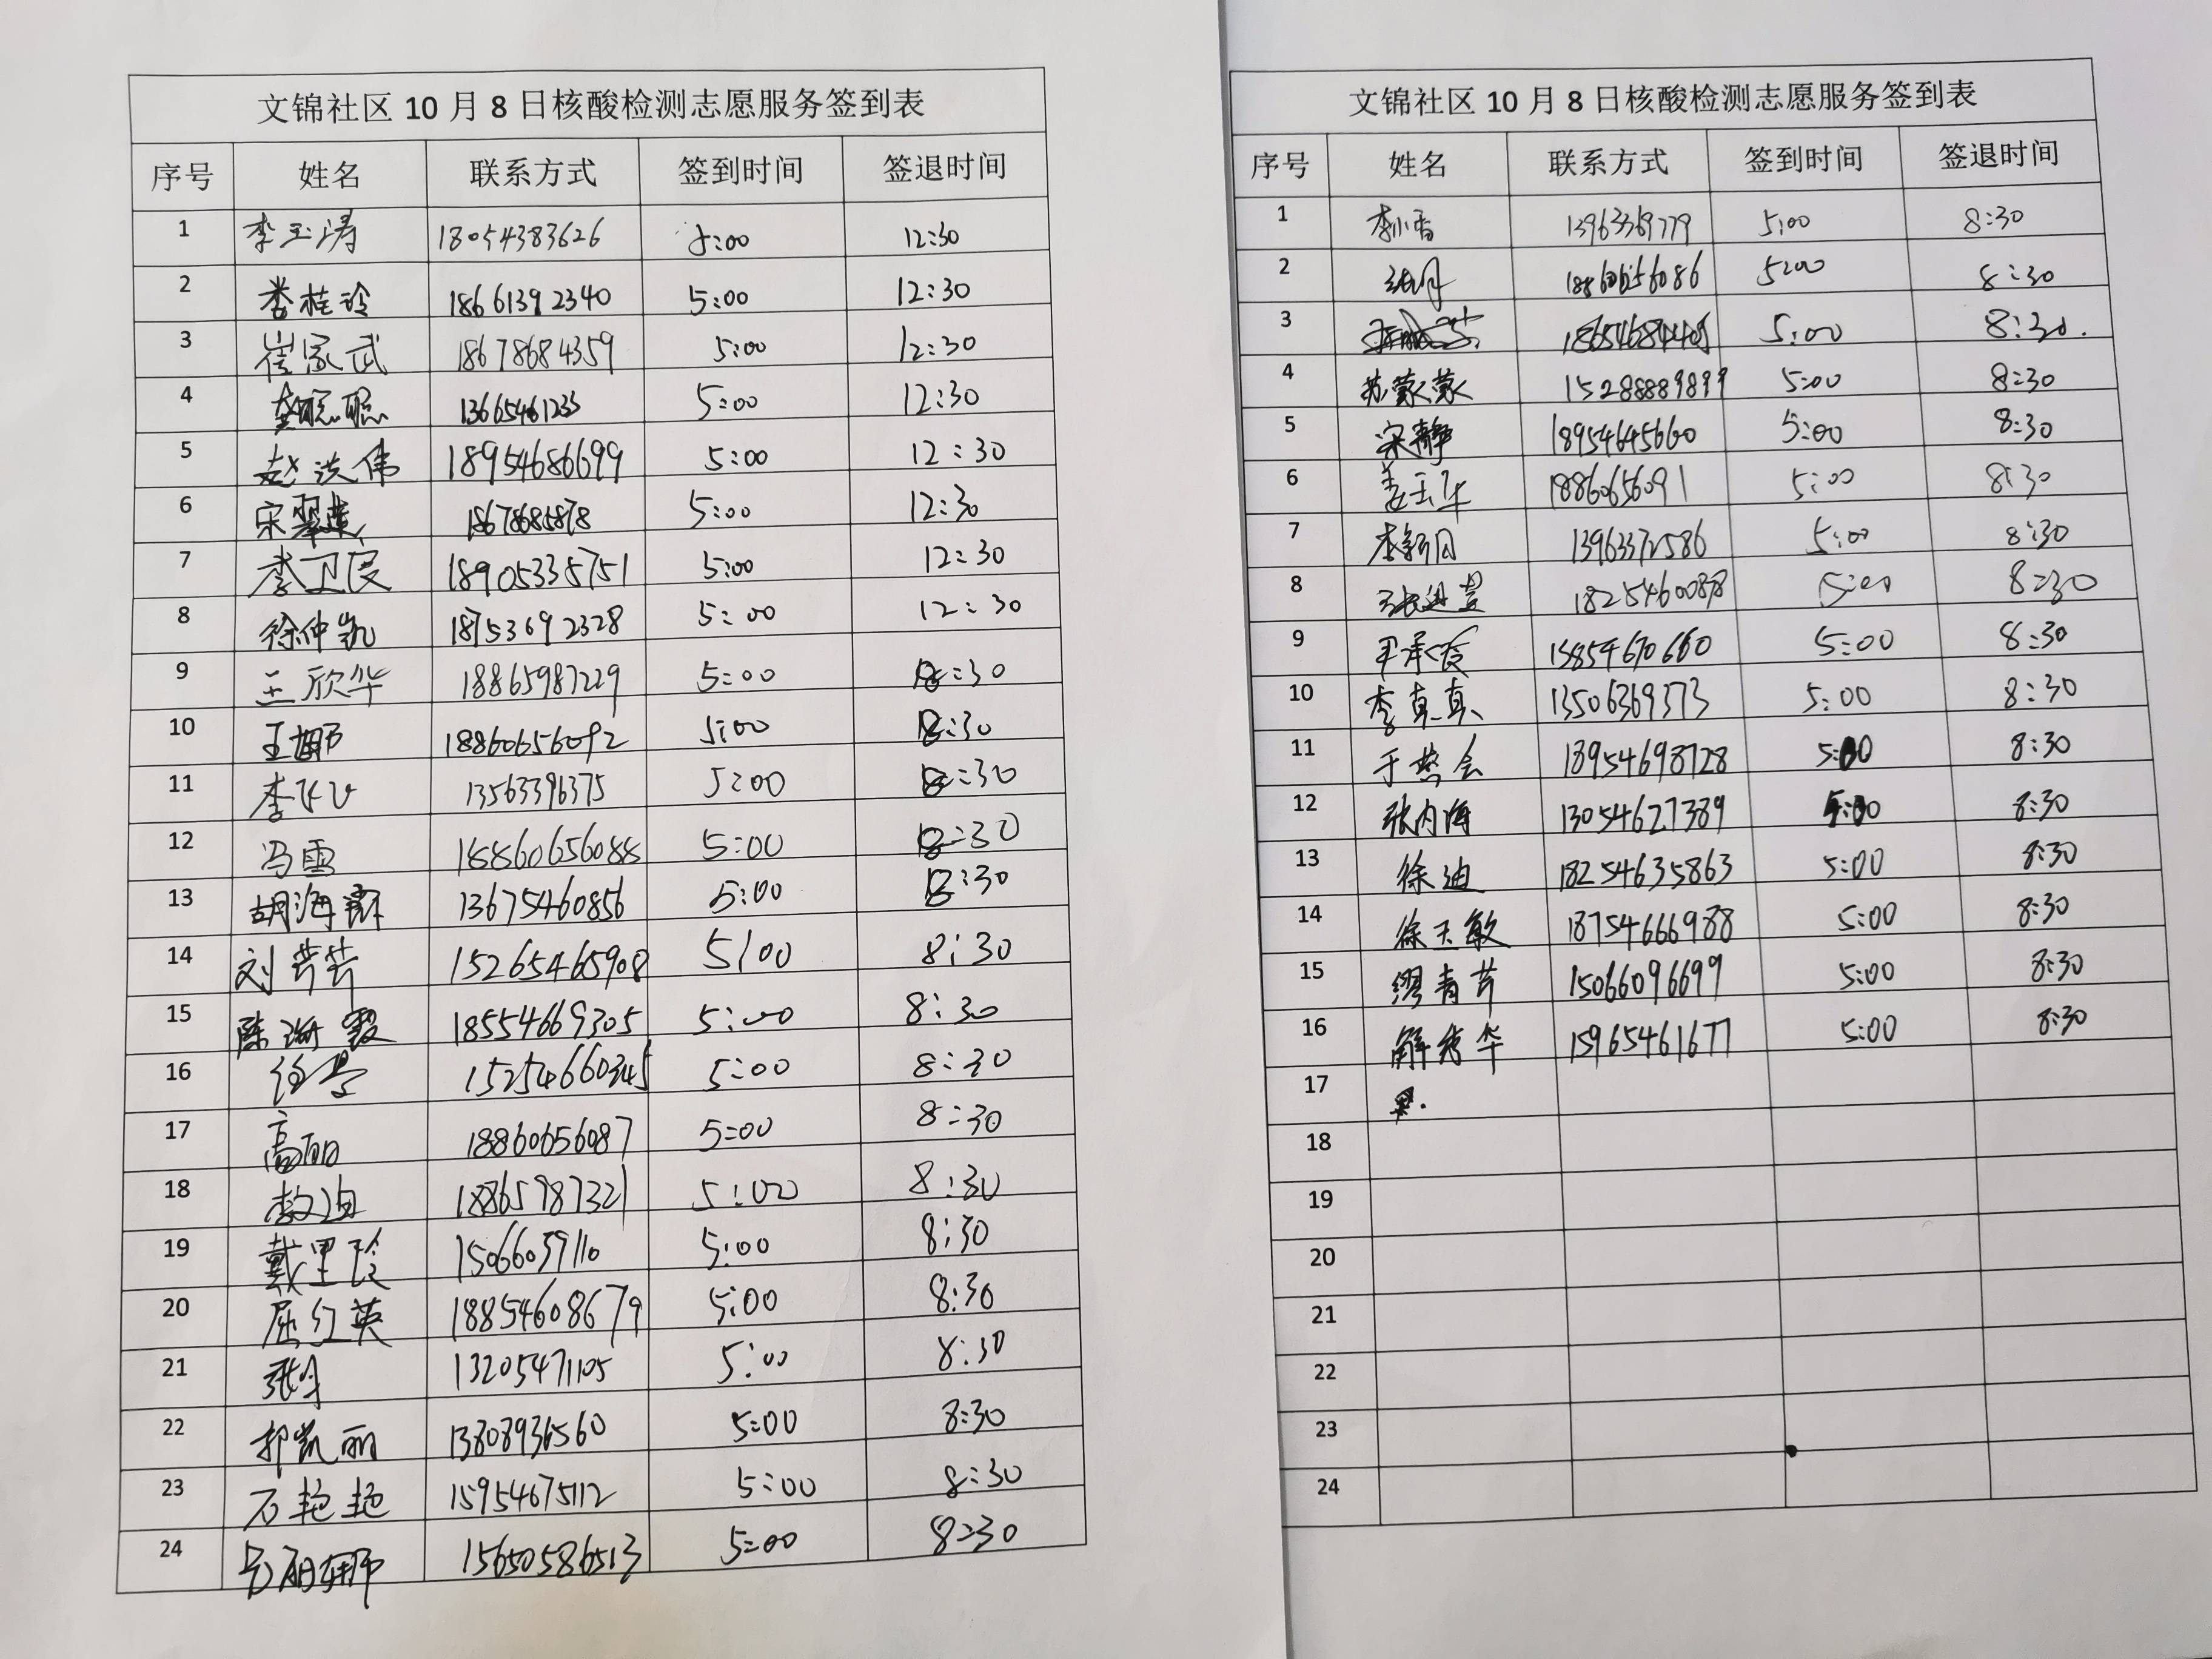 文锦社区 10 月 8 日核酸检测志愿服务签到表
序号 姓名 联系方式 签到时间 签退时间
1 李玉涛 18054383626 5:00 12:30
2 桂玲 18661392340 5:00 12:30
3 崔家武 18678684359 5:00 12:30
4 龚聪聪 13665461233 5:00 12:30
5 赵洪伟 18954686699 5:00 12:30
6 宋翠莲 18678685878 5:00 12:30
7 李卫民 18905335751 5:00 12:30
8 徐仲凯 18753692328 5:00 12:30
9 王欣华 18865987229 5:00 8:30
10 王娜 18860656092 5:00 8:30
11 李飞飞 13563396375 5:00 8:30
12 冯雪 18860656088 5:00 8:30
13 胡海霞 13675460856 5:00 8:30
14 刘芸芸 15265465908 5:00 8:30
15 陈海霞 18554669305 5:00 8:30
16 15254660345 5:00 8:30
17 高丽 18860656087 5:00 8:30
18 18865987321 5:00 8:30
19 戴里玲 15066039110 5:00 8:30
20 屈红英 18854608679 5:00 8:30
21 13205471105 5:00 8:30
22 郭凯丽 13808936560 5:00 8:30
23 石艳艳 15954675112 5:00 8:30
24 15650586513 5:00 8:30
文锦社区 10 月 8 日核酸检测志愿服务签到表
序号 姓名 联系方式 签到时间 签退时间
1 李小香 13963369779 5:00 8:30
2 18860656086 5:00 8:30
3 5:00 8:30
4 苏蒙蒙 15288889899 5:00 8:30
5 宋静 18954645660 5:00 8:30
6 姜玉华 18860656091 5:00 8:30
7 李新园 13963372586 5:00 8:30
8 18254600878 5:00 8:30
9 15854670660 5:00 8:30
10 李真真 13506369373 5:00 8:30
11 于燕会 18954698728 5:00 8:30
12 张内海 13054627389 5:00 8:30
13 徐迪 18254635863 5:00 8:30
14 徐玉敏 18754666988 5:00 8:30
15 缪青芹 15066096699 5:00 8:30
16 解秀华 15965461677 5:00 8:30
17
18
19
20
21
22
23
24